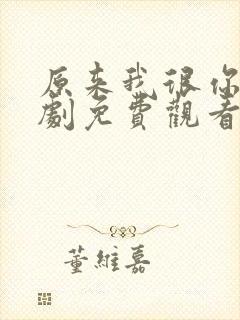 原来我很你
劇免費觀看
董維嘉